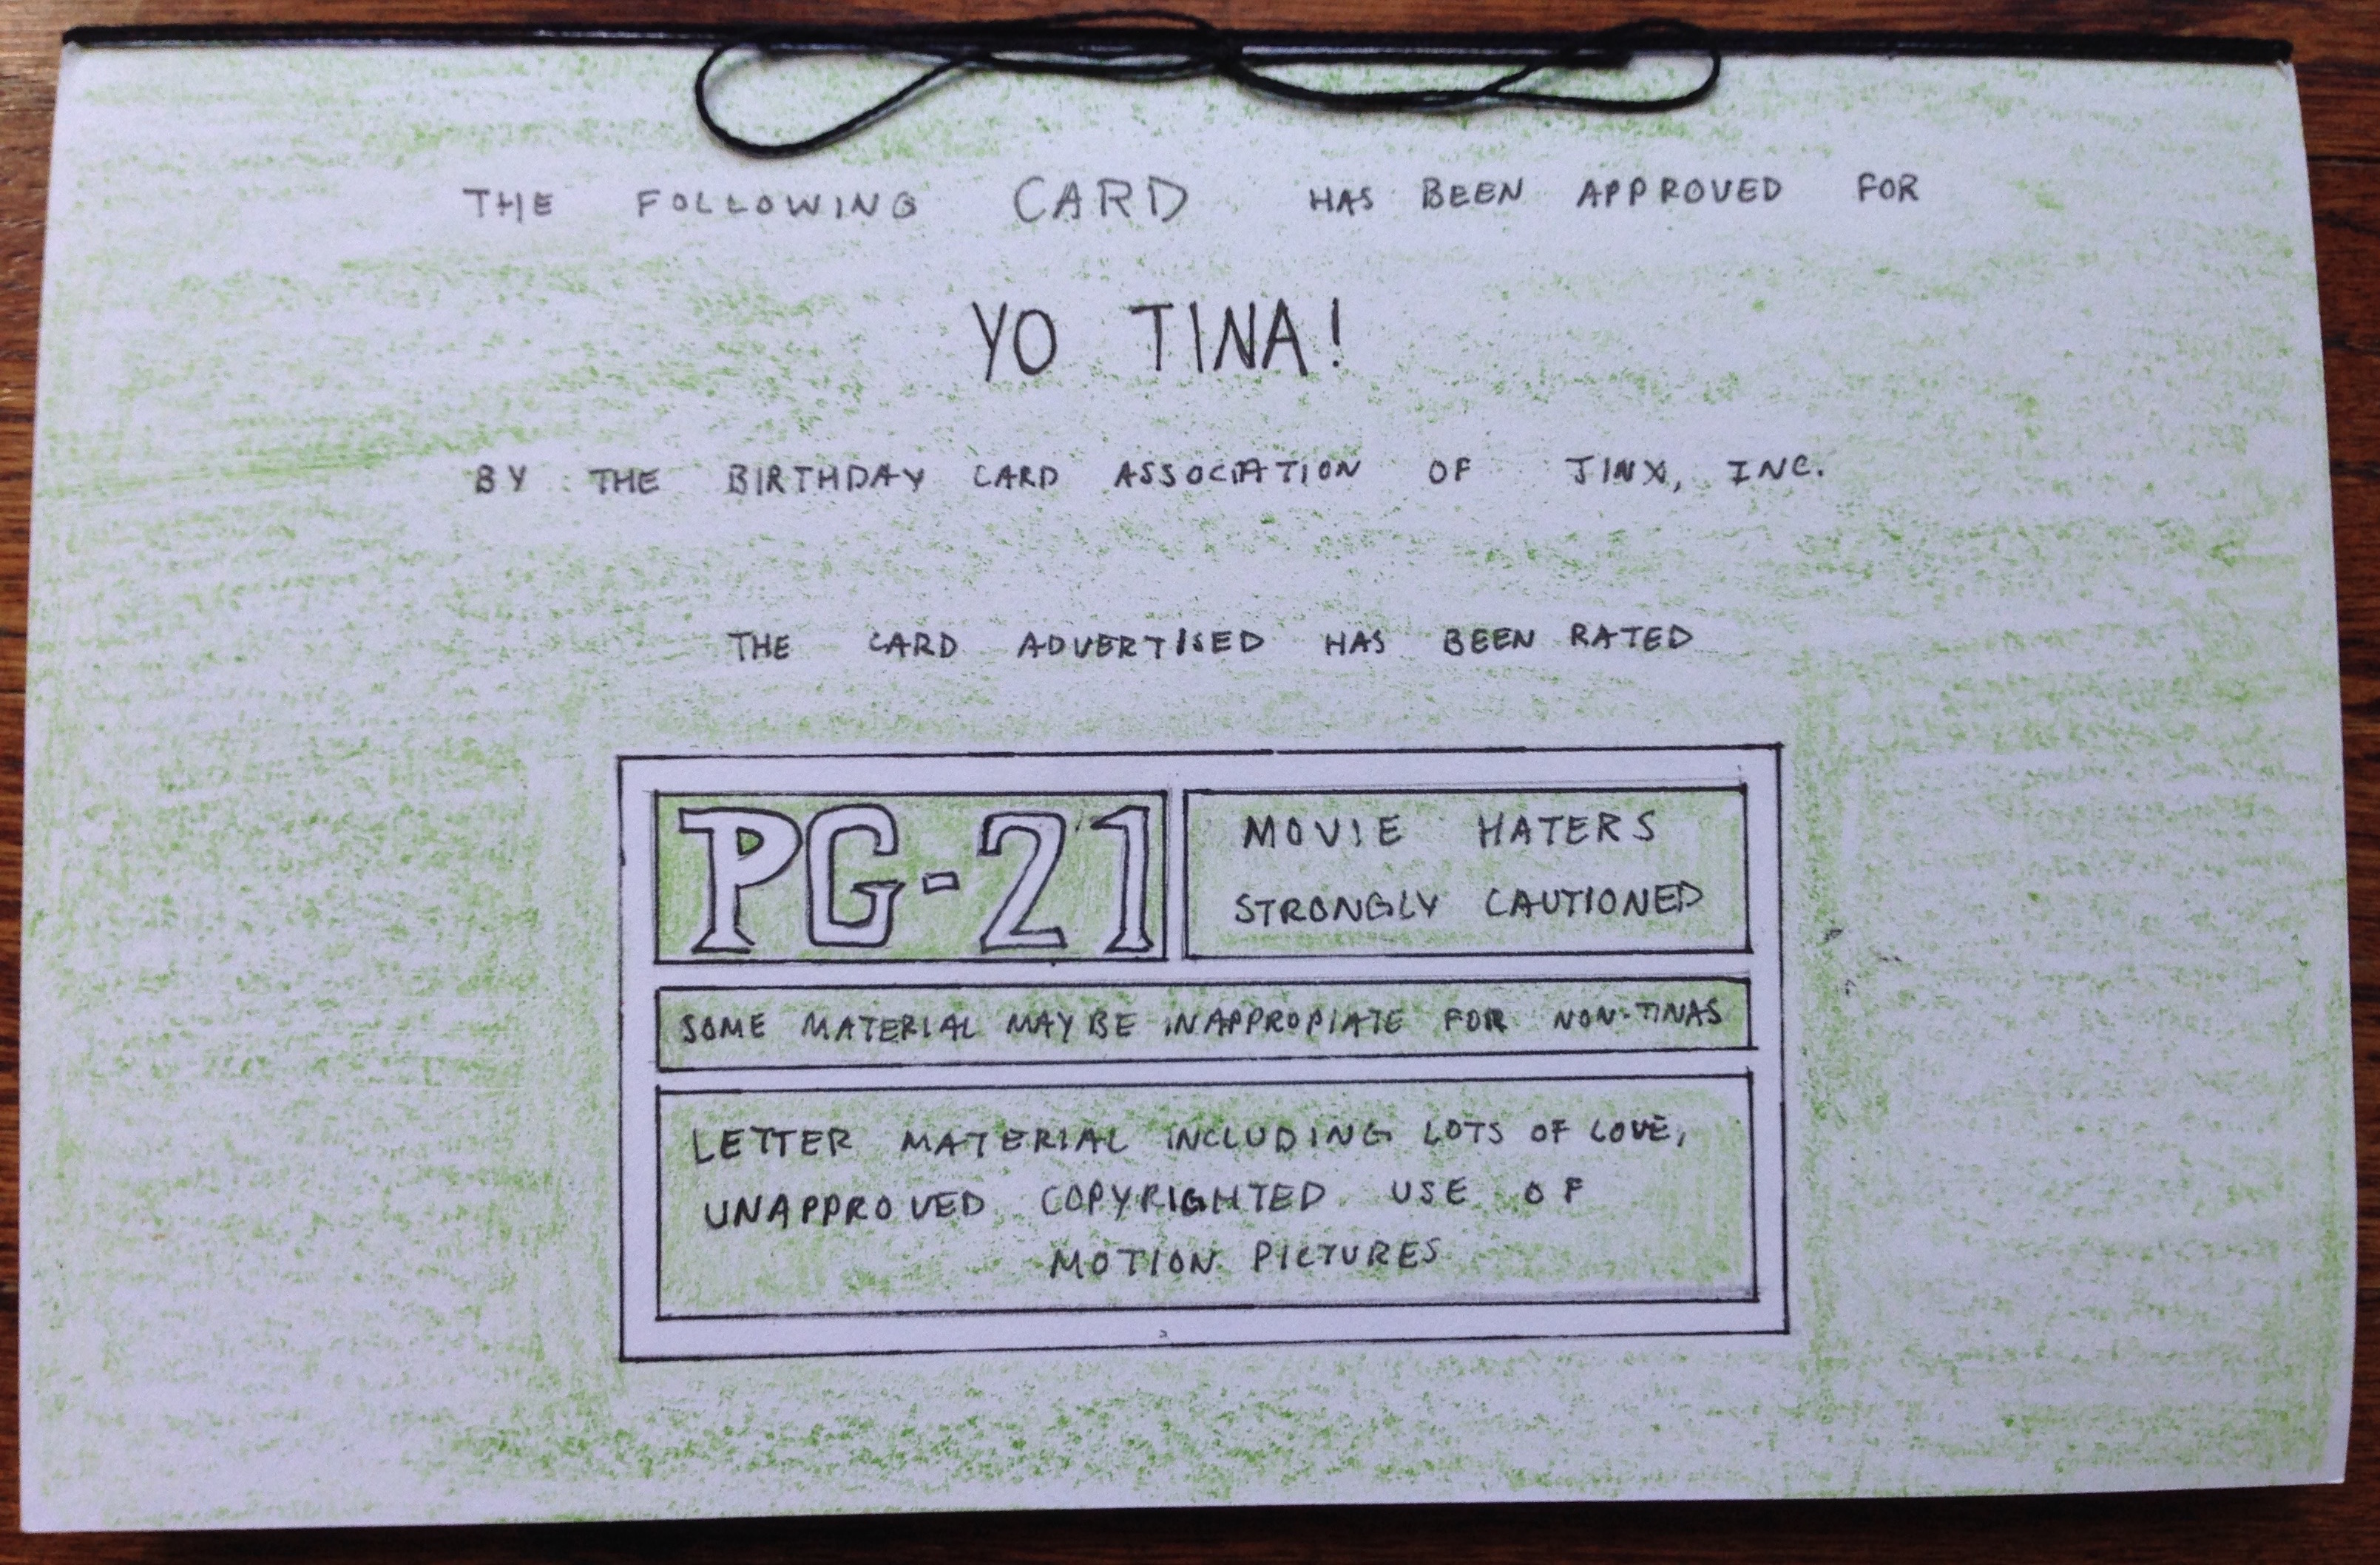 THE FOLLOWING CARD HAS BEEN APPROVED FOR
YO TINA!
BY THE BIRTHDAY CARD ASSOCIATION OF JINX, INC.
THE CARD ADVERTISED HAS BEEN RATED
PG-21
MOVIE HATERS
STRONGLY CAUTIONED
SOME MATERIAL MAY BE INAPPROPIATE FOR NON-TINAS
LETTER MATERIAL INCLUDING LOTS OF LOVE,
UNAPPROVED COPYRIGHTED USE OF
MOTION PICTURES